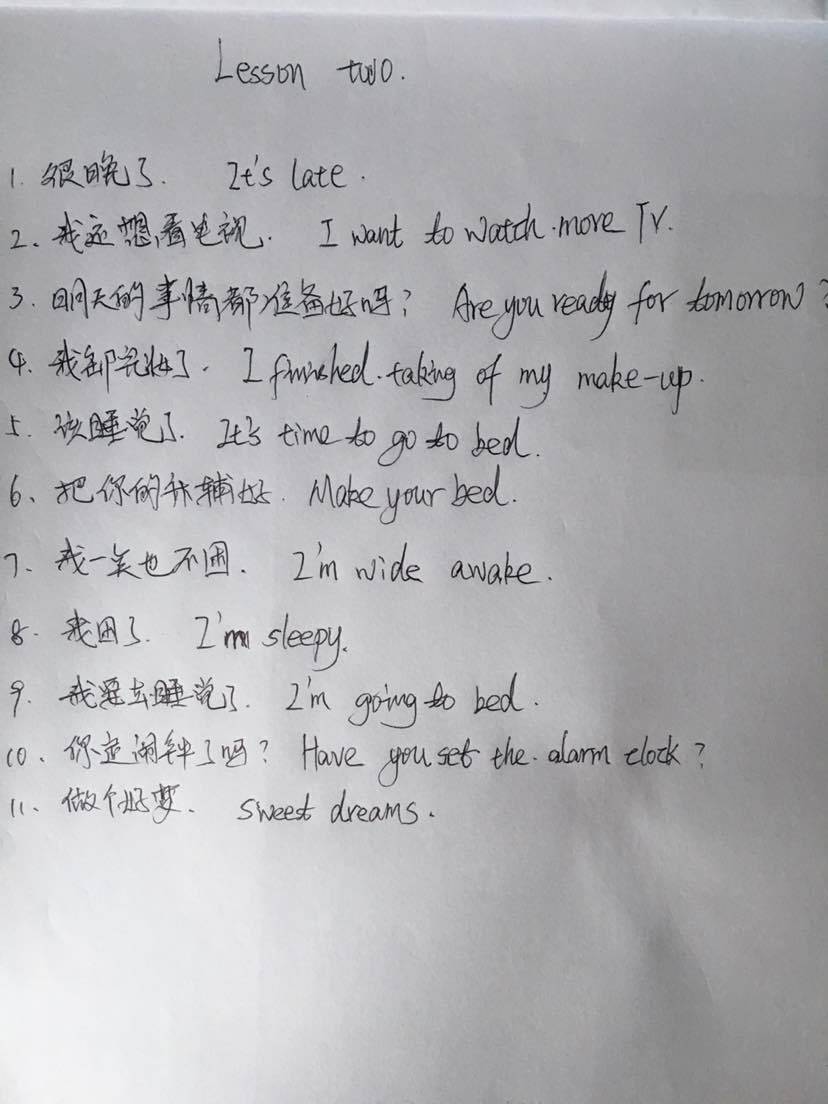 Lesson two.
1. 很晚了. It's late.
2、我还想看电视. I want to watch more TV.
3. 明天的事情都准备好吗? Are you ready for tomorrow?
4. 我卸完妆了. I finished taking of my make-up.
5. 该睡觉了. It's time to go to bed.
6、把你的床辅好. Make your bed.
7、我一点也不困. I'm wide awake.
8. 我困了. I'm sleepy.
9. 我要去睡觉了. I'm going to bed.
10、你定闹钟了吗? Have you set the alarm clock?
11、做个好梦. Sweet dreams.